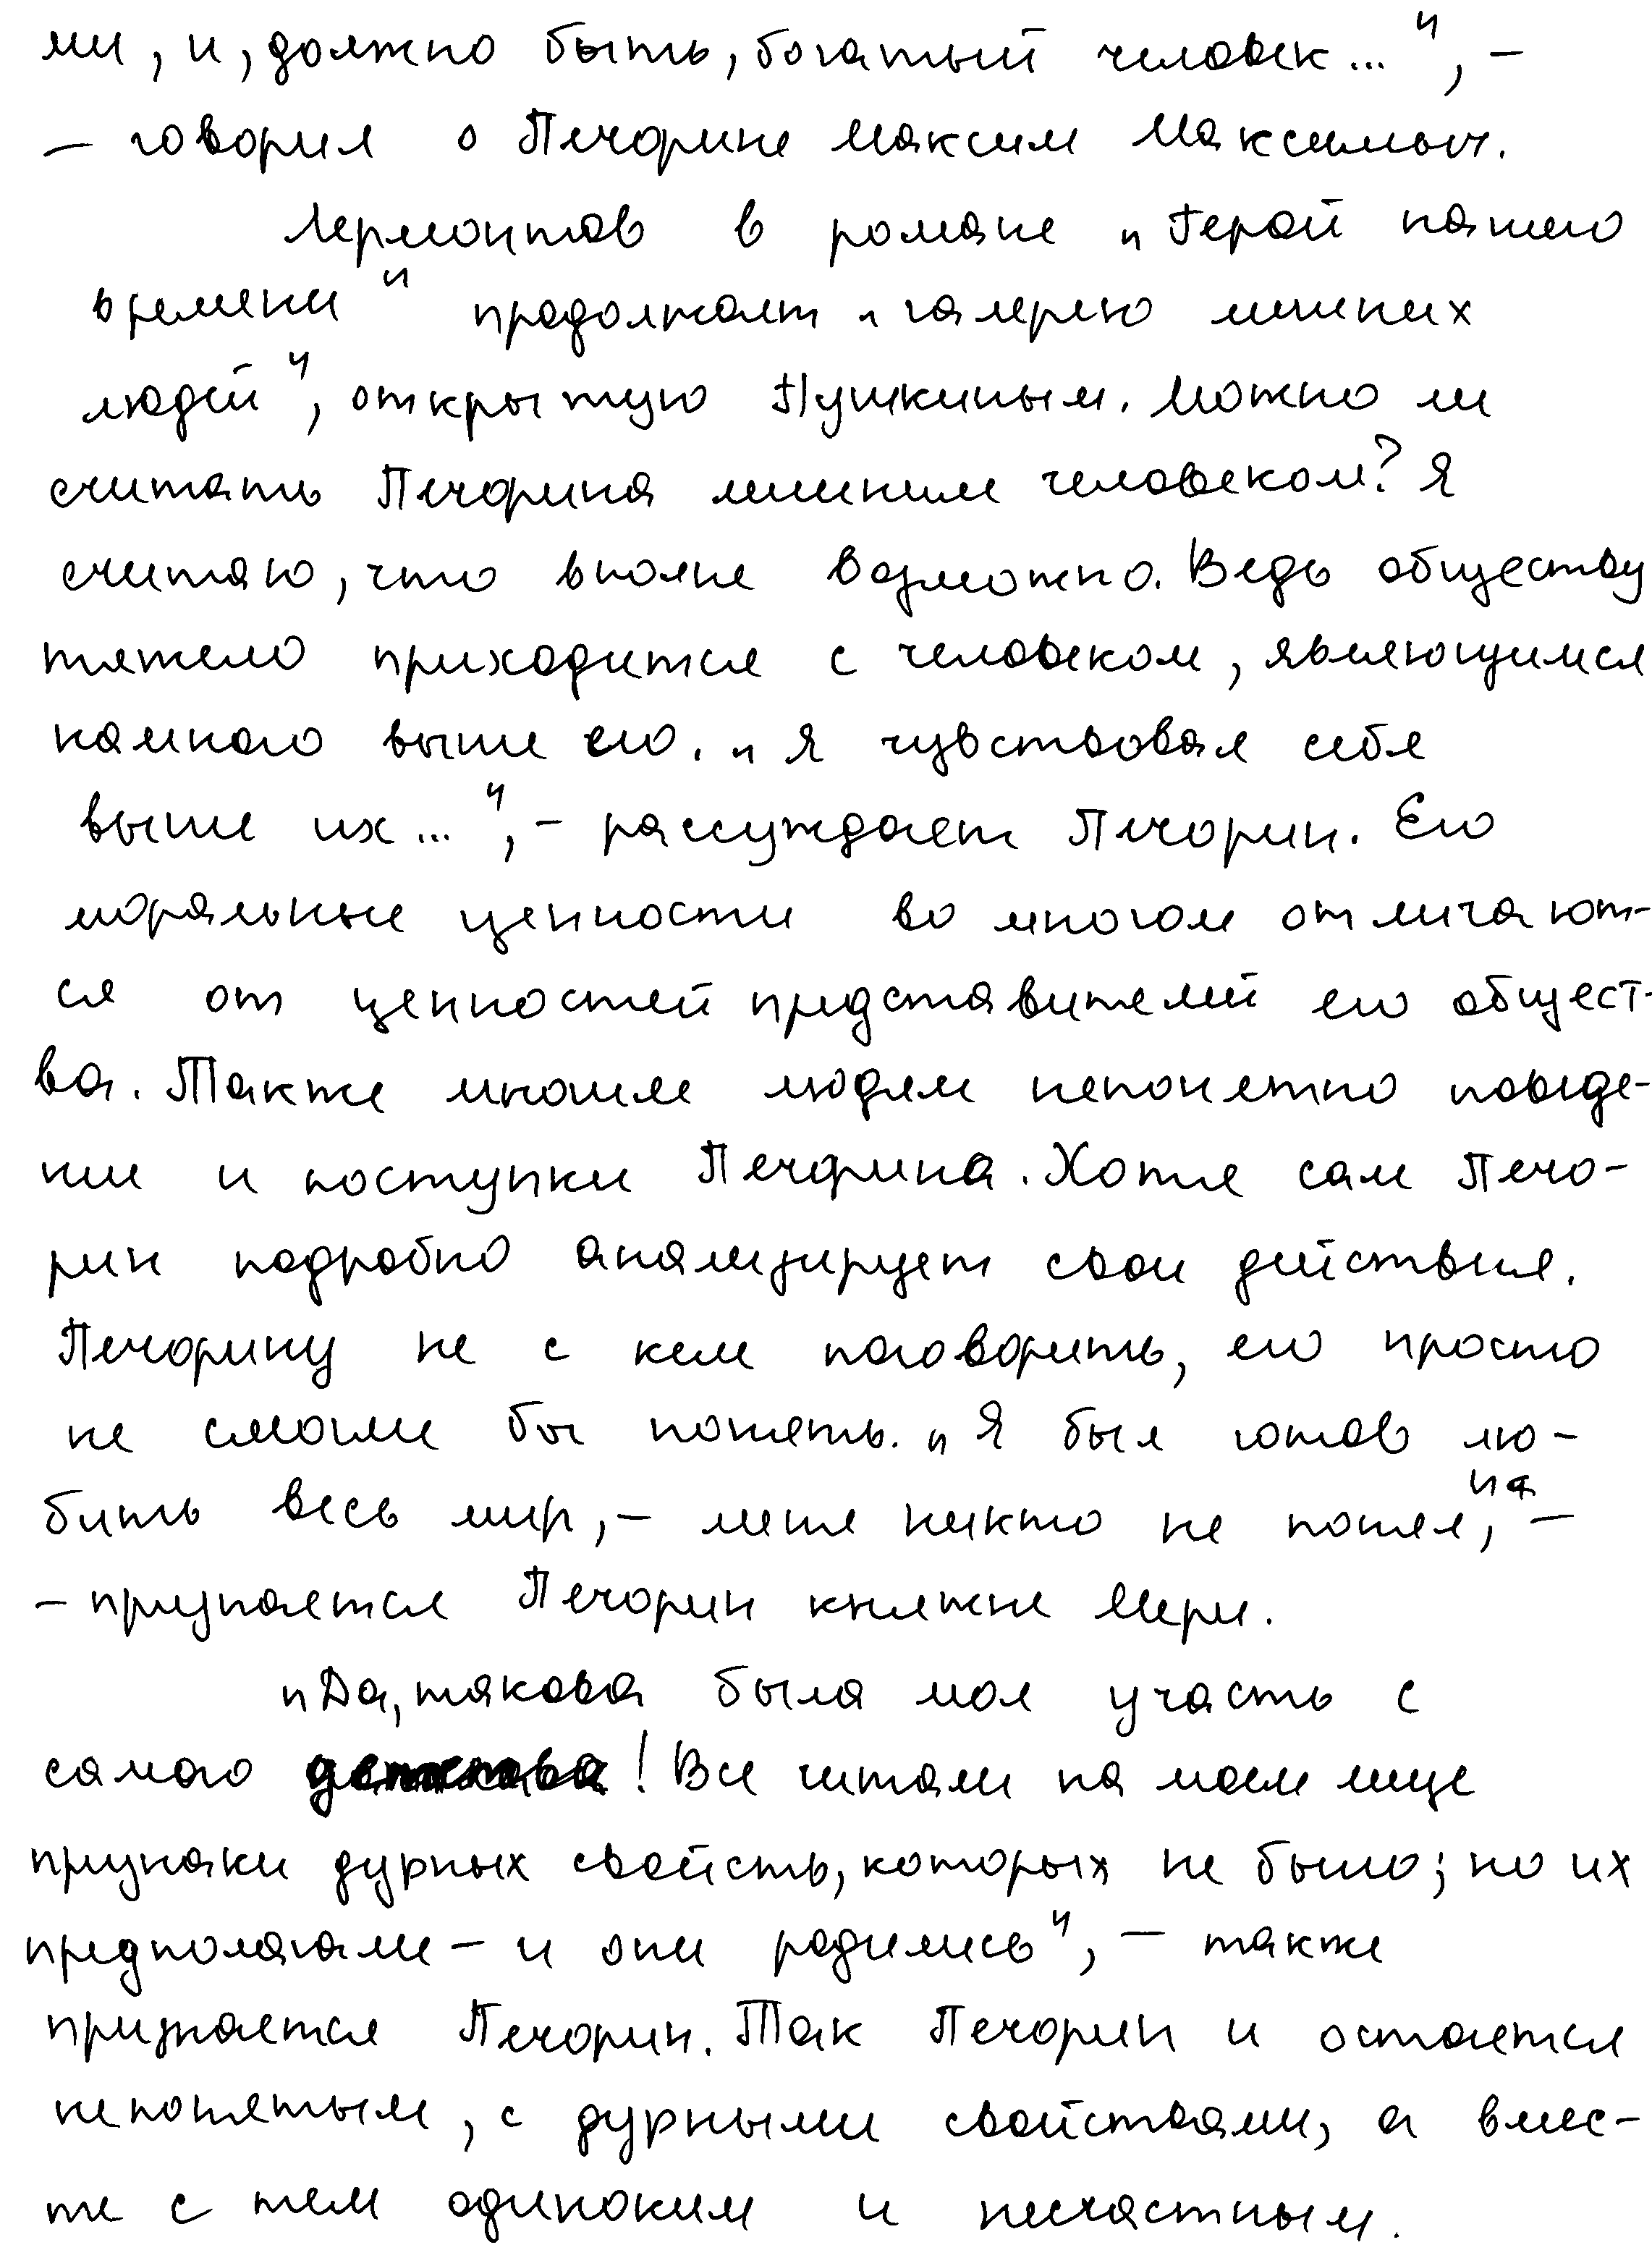 ми, и, должно быть, богатый человек...", -
- говорил о Печорине Максим Максимыч.
Лермонтов в романе „Герой нашего
времени" продолжает „галерею лишних
людей", открытую Пушкиным. Можно ли
считать Печорина лишним человеком? Я
считаю, что вполне возможно. Ведь обществу
тяжело приходится с человеком, являющимся
намного выше его. „Я чувствовал себя
выше их...", - рассуждает Печорин. Его
моральные ценности во многом отличают-
ся от ценностей представителей его общест-
ва. Также многим людям непонятно поведе-
ние и поступки Печорина. Хотя сам Печо-
рин подробно анализирует свои действия.
Печорину не с кем поговорить, его просто
не смогли бы понять. „Я был готов лю-
бить весь мир, - меня никто не понял", -
- признается Печорин княжне Мери.
„Да, такова была моя участь с
самого детства! Все читали на моем лице
признаки дурных свойств, которых не было; но их
предполагали - и они родились", - также
признается Печорин. Так Печорин и остается
непонятым, с дурными свойствами, а вмес-
те с тем одиноким и несчастным.